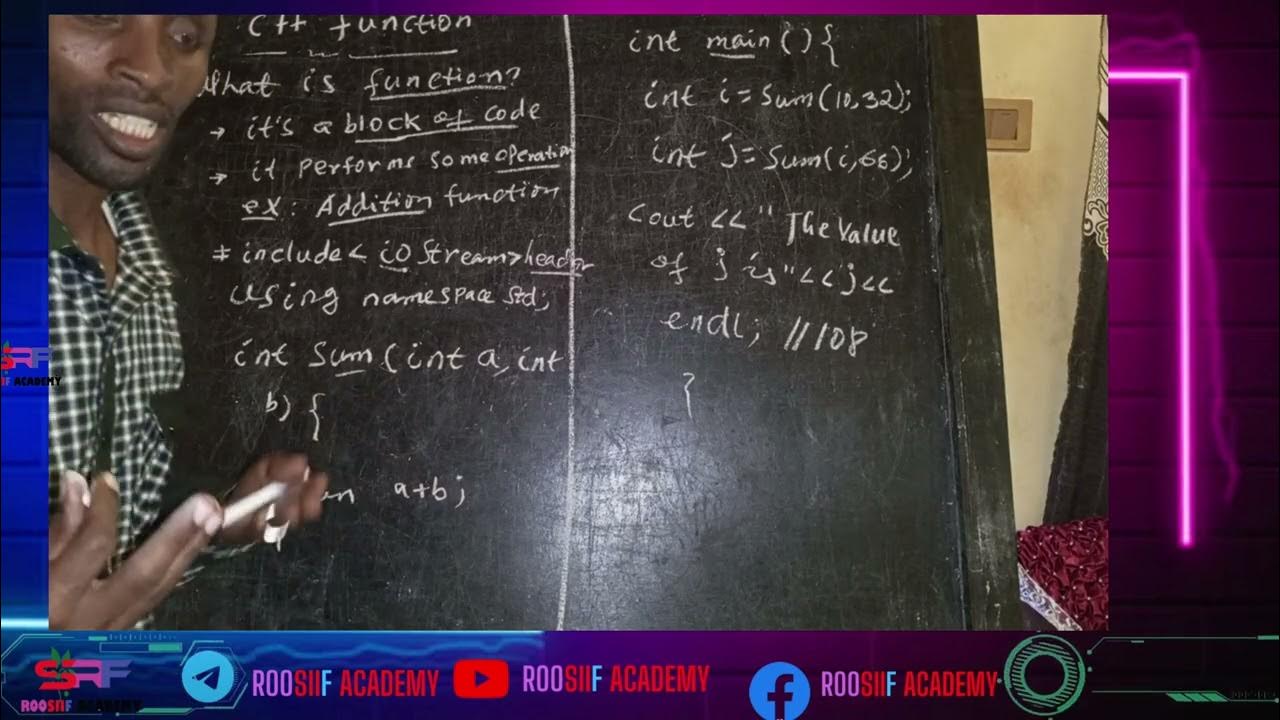 C++ function
What is function?
→ it's a block of code
→ it performs some operation
ex: Addition function
# include < io Stream> header
Using namespace Std;
int Sum (int a, int
b) {
a+b;
int main () {
int i = Sum(10,32);
int j = Sum(i,66);
Cout << " The Value
of j is" << j <<
endl; // 108
}
SRF
ACADEMY
SRF
ROOSIIF ACADEMY
ROOSIIF ACADEMY
ROOSIIF ACADEMY
ROOSIIF ACADEMY